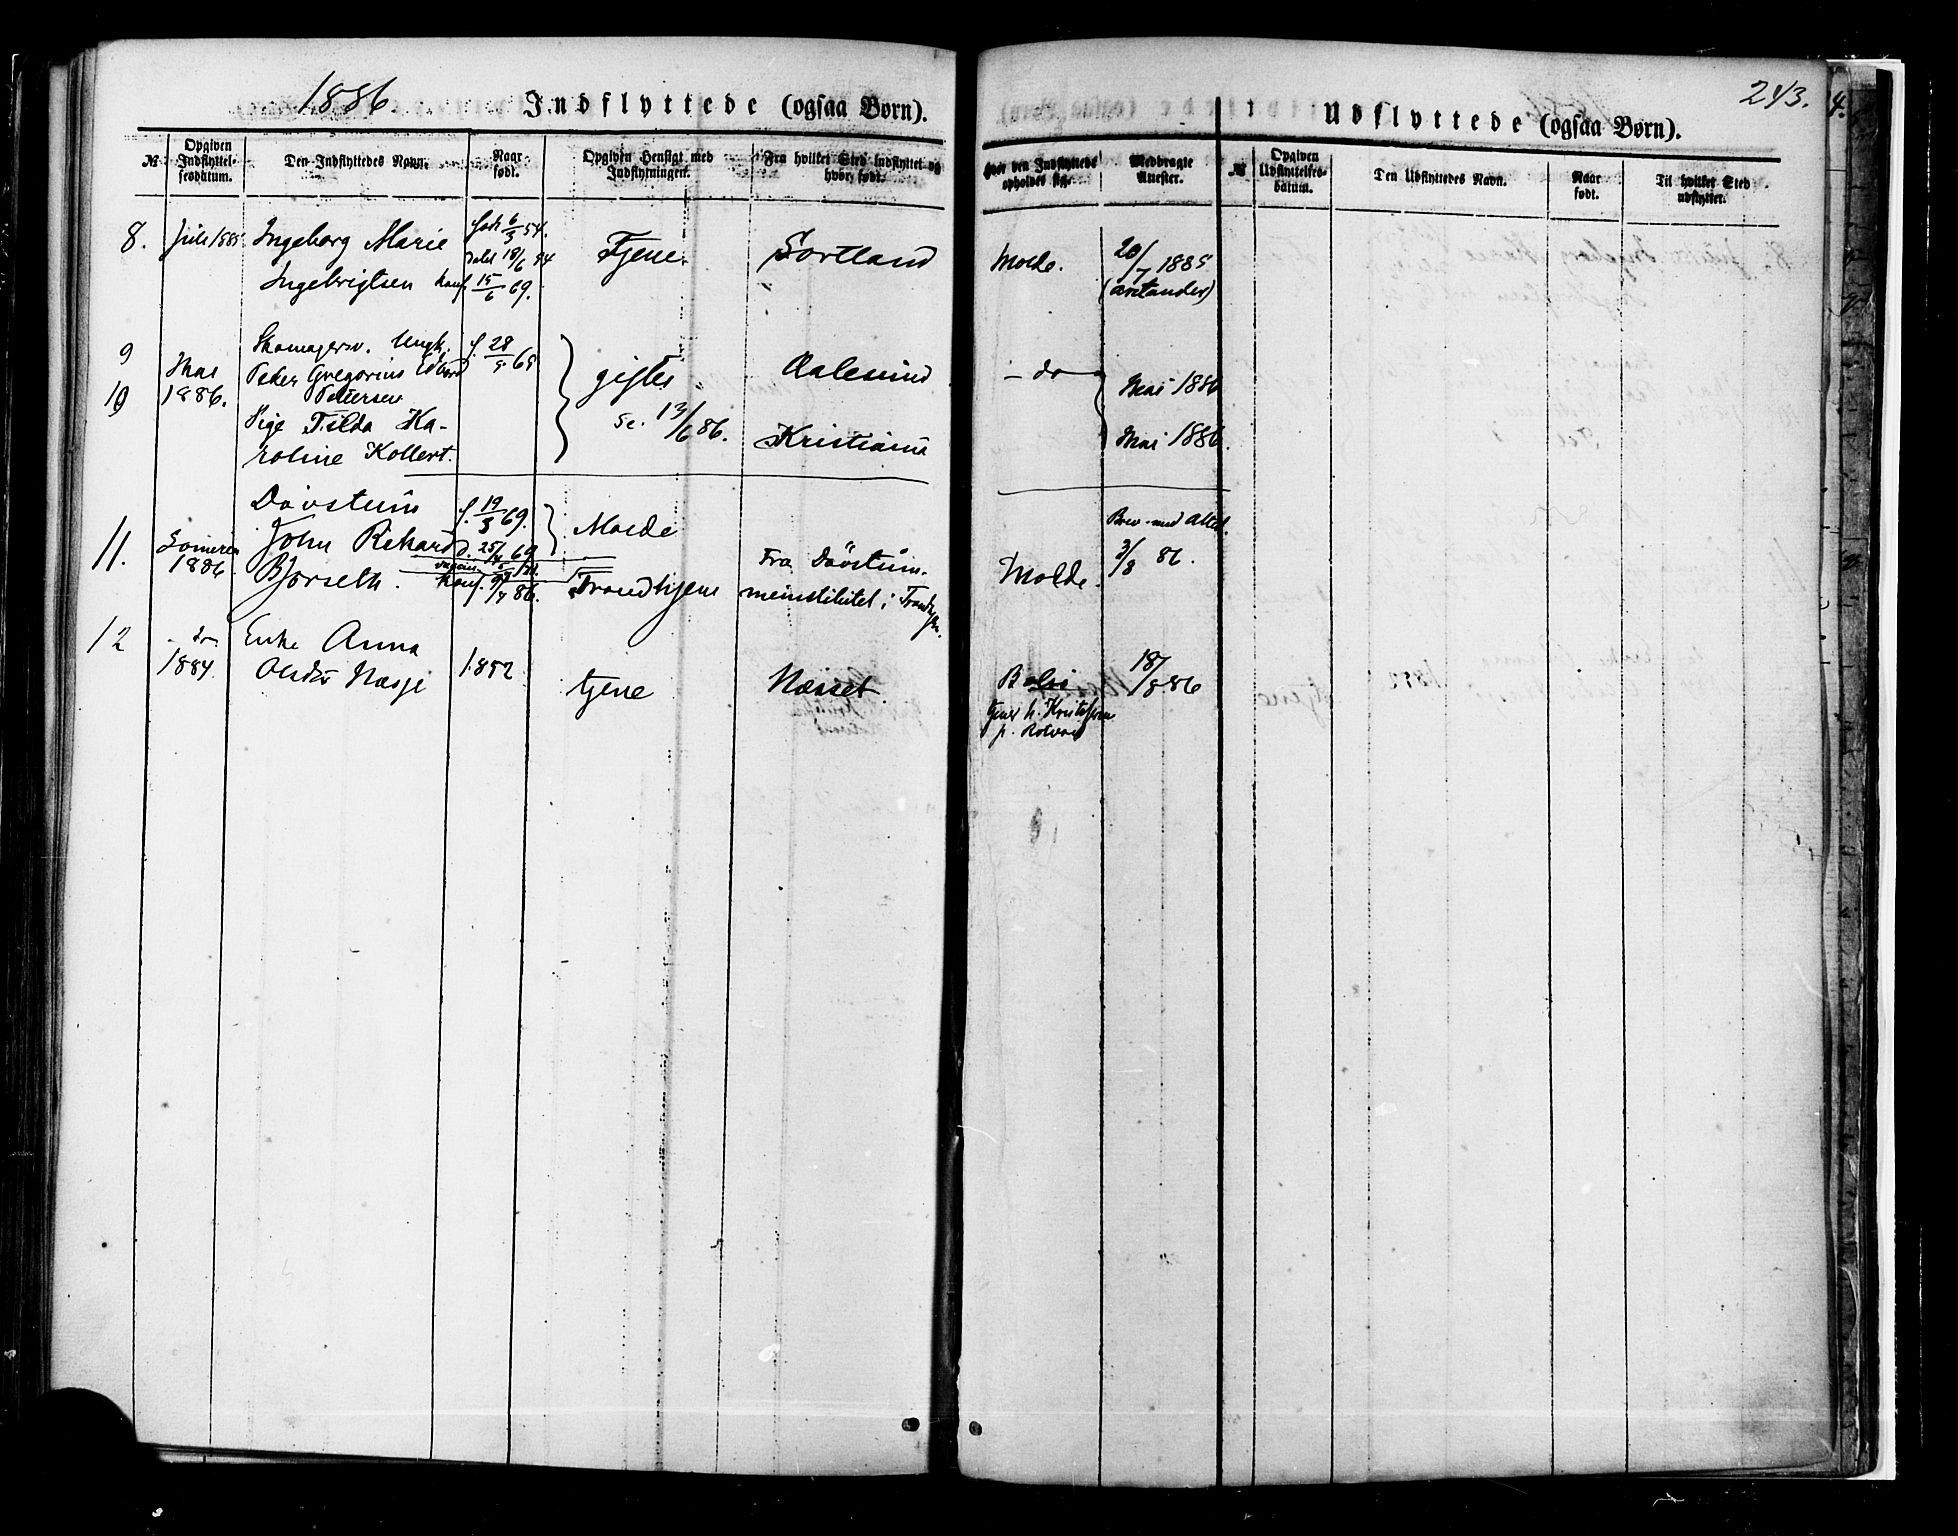 1886
Indflyttede (ogsaa Børn).
№
Opgiven Indflyttelsesdatum.
Den Indflyttedes Navn.
Naar født.
Opgiven Hensigt med Indflytningen.
Fra hvilket Sted indflyttet og hvor født.
8.
Juli 1885
Ingeborg Marie
Ingebrigtsen
født 6/3 54.
døbt 18/6 54
konf. 15/6 69.
Tjene.
Sortland
9
10
Mai
1886.
Skomagersv. Ungk.
Peter Gregorius Edvard
Petersen
Pige Tilda Ka-
roline Kollert.
f. 28/5 65
giftes
se. 13/6 86.
Aalesund
Kristiania
11.
Someren
1886.
Døvstum
John Rikard
Bjørseth.
f. 19/3 69.
d. 25/4 69
konf. 86.
Molde
Trondhjem
Fra Døvstum-
meinstitutet i Trondhjm.
12
- do
1884.
Enke Anna
Næsje
1852
tjene
Næsset
243.
Udflyttede (ogsaa Børn).
Hvor den Indflyttede opholder sig.
Medbragte Attester.
№
Opgiven Udflyttelsesdatum.
Den Udflyttedes Navn.
Naar født.
Til hvilket Sted udflyttet.
Molde.
20/7 1885
- do -
Mai 1886
Mai 1886.
Molde.
Brev med Attest
3/8 86.
Bolsø
tjener h.
p.
18/8 86